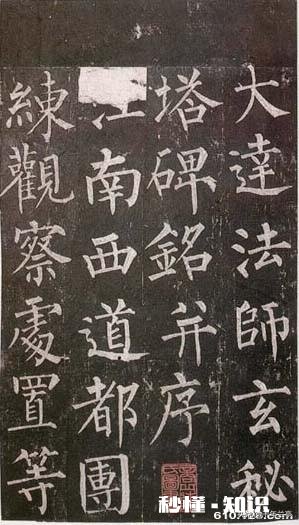 大達法師玄秘
塔碑銘并序
江南西道都團
練觀察處置等
秒懂·知识